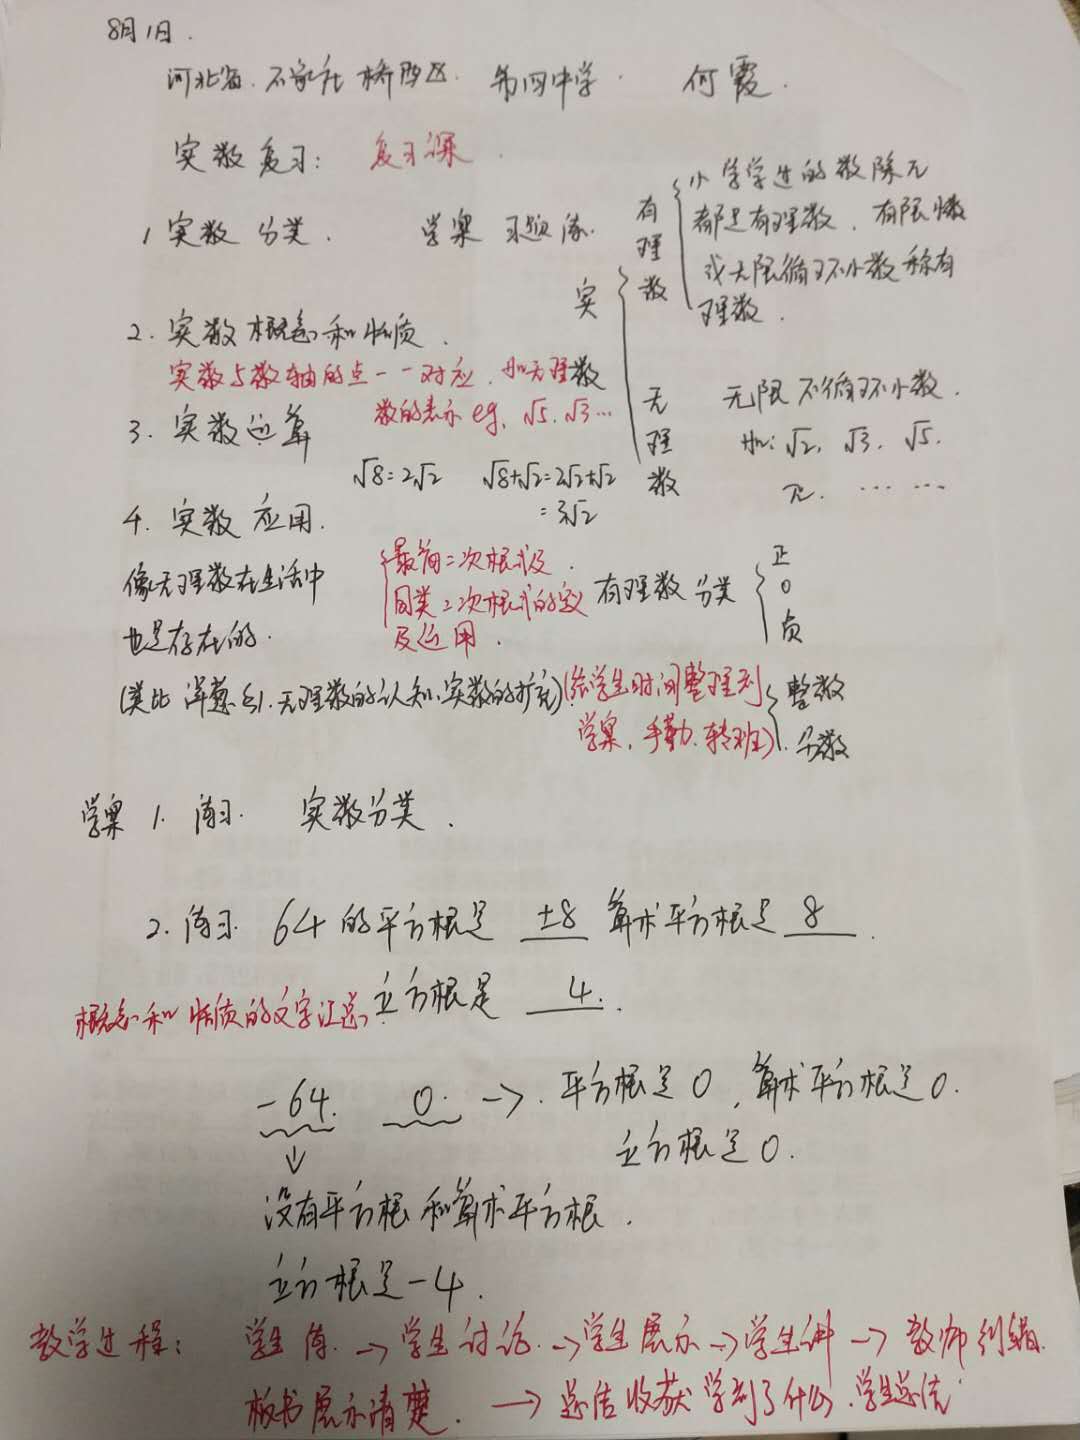 8月1日.
河北省. 石家庄 桥西区. 第四中学. 何霞.
实数复习: 复习课.
1 实数 分类. 学案 习题做.
实
有理数
小学学过的数除π
都是有理数. 有限小数
或无限循环小数称有
理数.
2. 实数概念和性质.
实数与数轴的点一一对应. 如无理数
数的表示 eg. √5. √3 …
无理数
无限不循环小数.
如: √2. √3. √5.
π. …… ……
3. 实数运算
√8=2√2 √8+√2=2√2+√2
=3√2
4. 实数 应用.
像无理数在生活中
也是存在的.
最简二次根式及.
同类二次根式的定义
及运用.
有理数 分类
正
0
负
(类比 洋葱的. 无理数的认知. 实数的扩充)
(给学生时间整理到
学案. 手勤. 转班)
整数
分数
学案 1. 练习. 实数分类.
2. 练习. 64 的平方根是 ±8 算术平方根是 8.
概念和性质的文字汇总 立方根是 4.
-64. 0. → 平方根是 0, 算术平方根是 0.
立方根是 0.
没有平方根和算术平方根.
立方根是 -4.
教学过程: 学生做. → 学生讨论. → 学生展示 → 学生讲 → 教师纠错.
板书展示清楚. → 总结收获 学到了什么. 学生总结